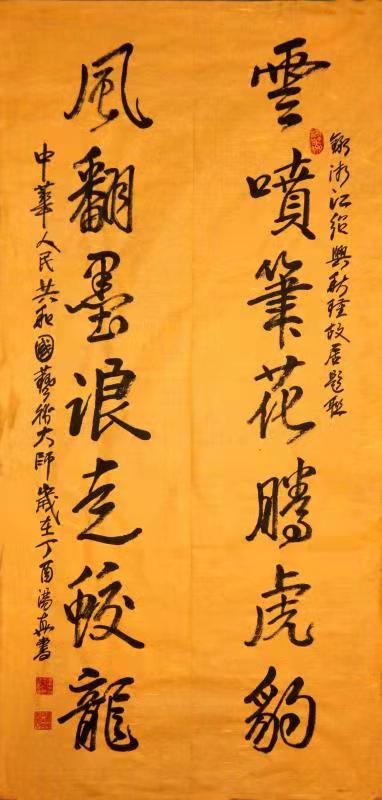 錄浙江紹興秋瑾故居題聯
雲噴筆花騰虎豹
風翻墨浪走蛟龍
中華人民共和國藝術大師歲在丁酉湯真書